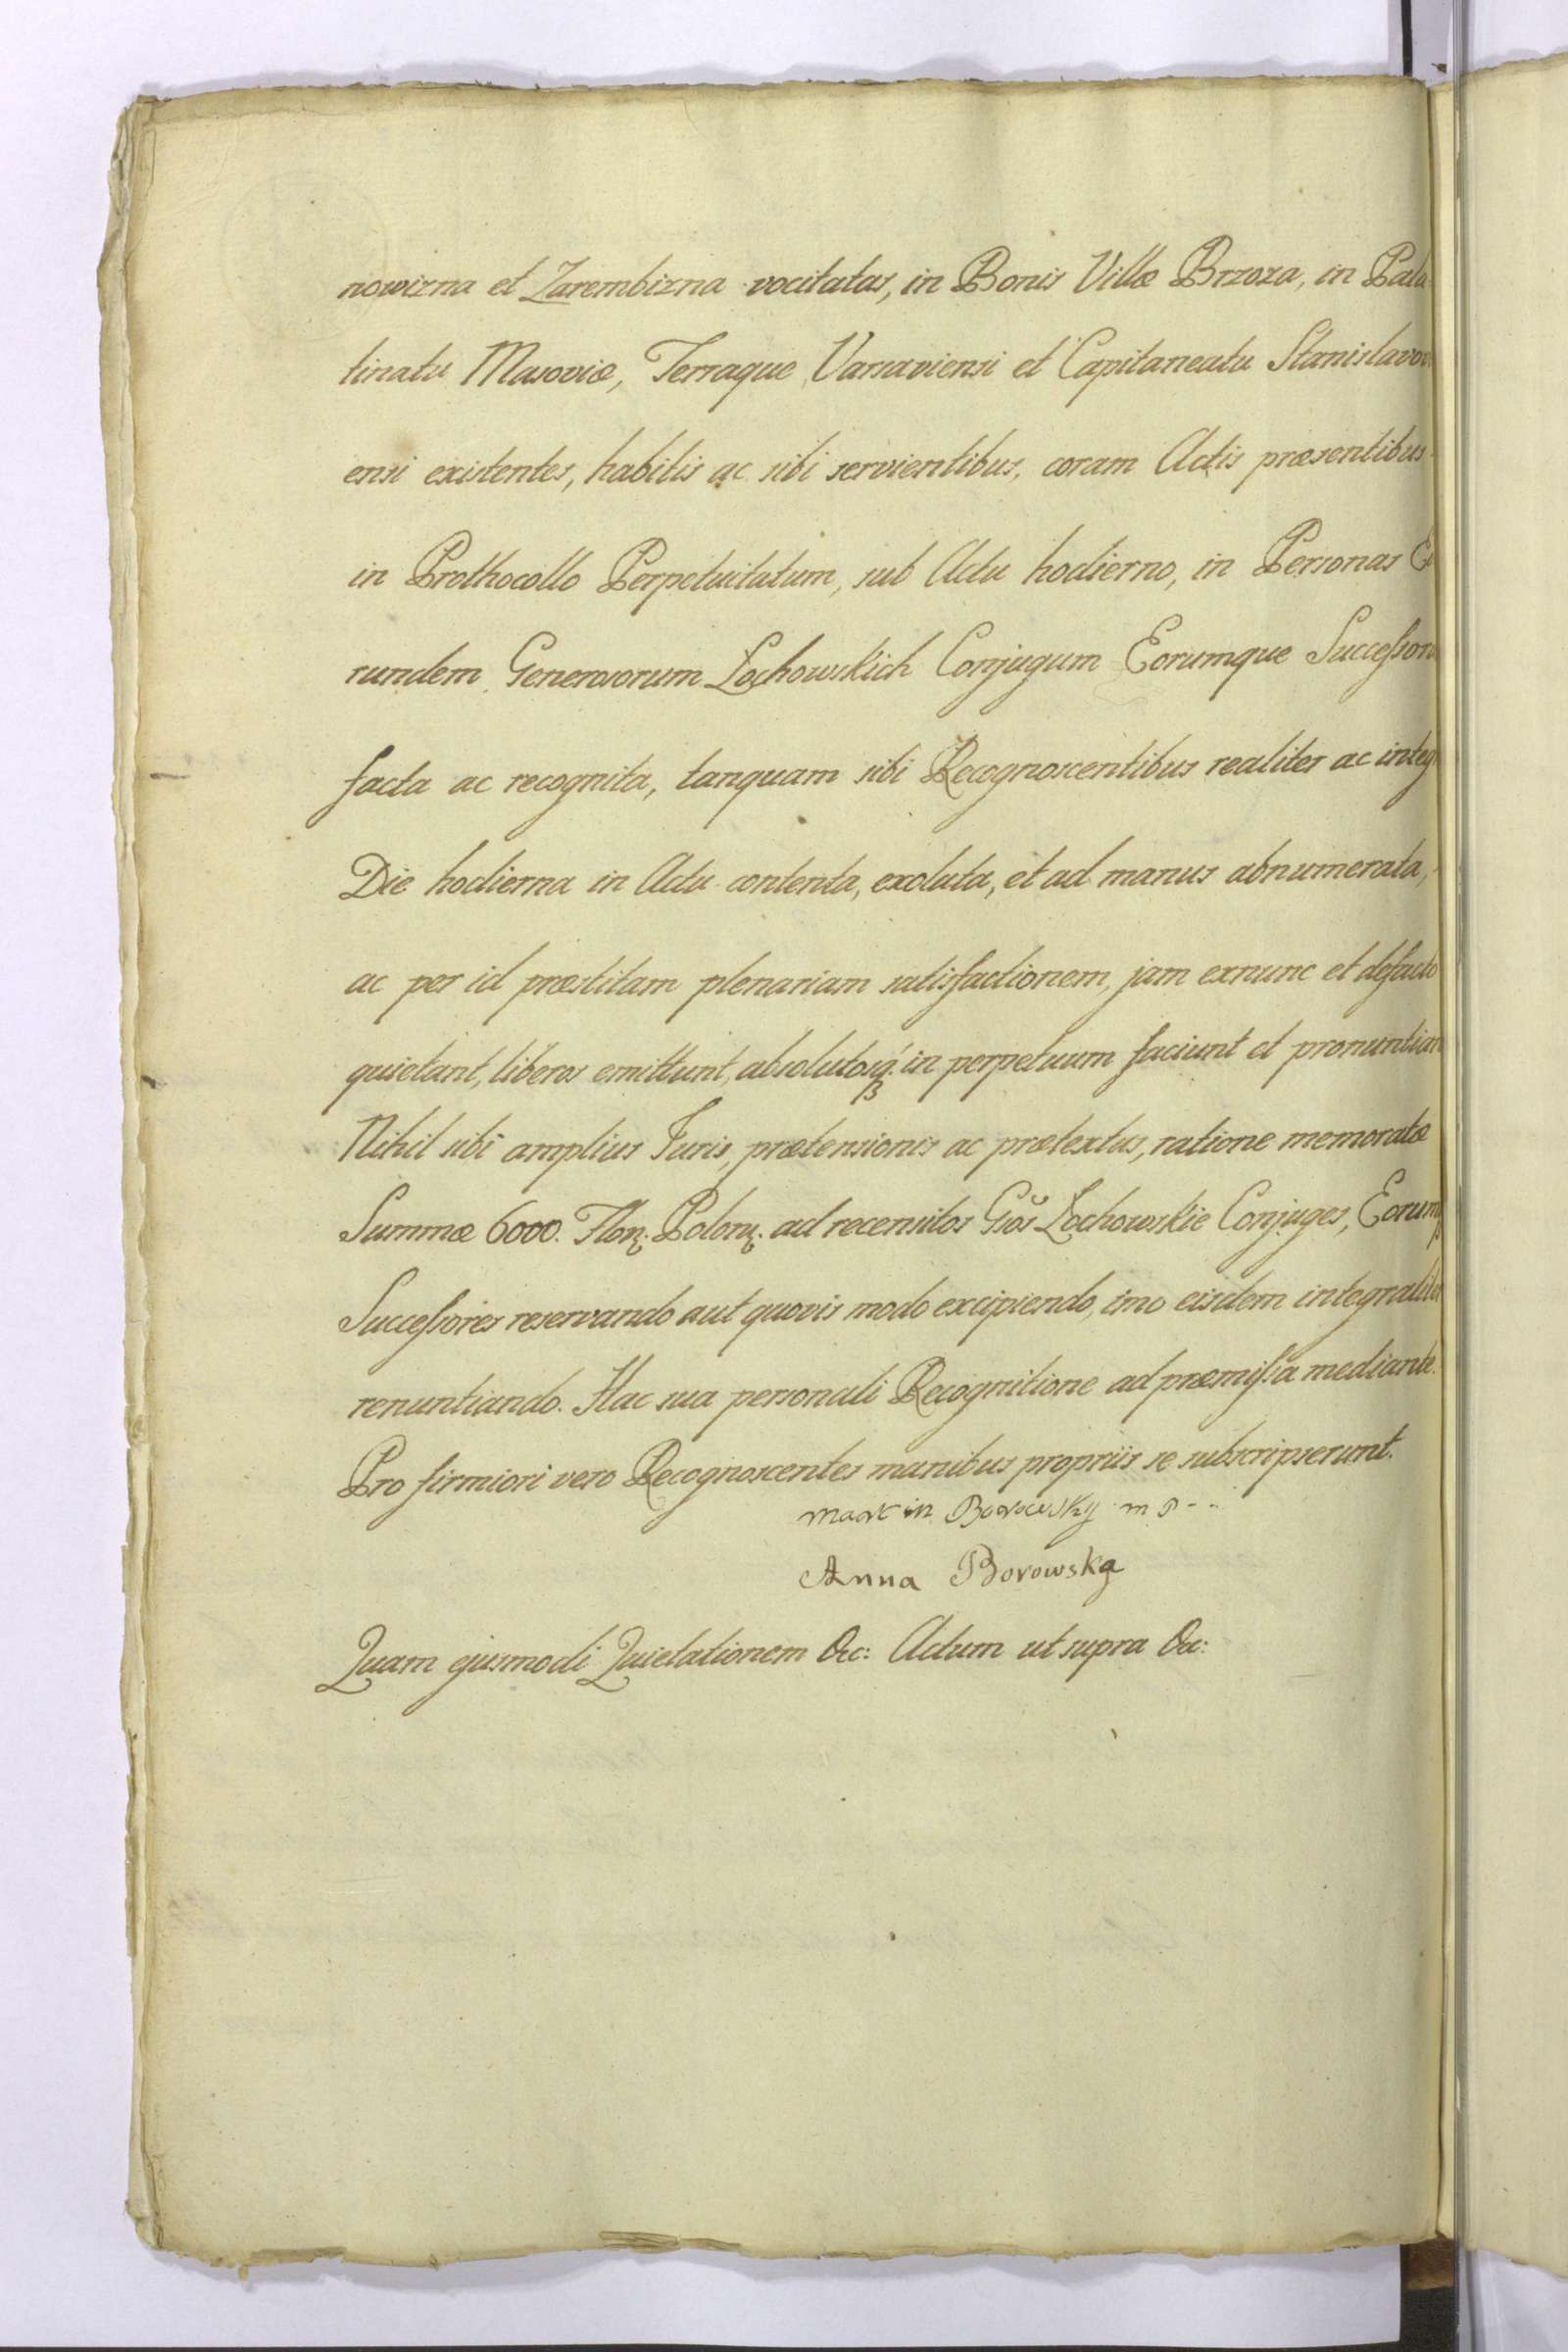 nowizna et Zarembizna vocitatas, in Bonis Villæ Brzoza, in Pala
tinatu Masoviæ, Terraque Varsaviensi et Capitaneatu Stanislavov
ensi existentes, habitis ac sibi servientibus, coram Actis præsentibus
in Prothocollo Perpetuitatum, sub Actu hodierno, in Personas Eo
rundem Generosorum Łochowskich Conjugum Eorumque Successor
facta ac recognita, tanquam sibi Recognoscentibus realiter ac integ
Die hodierna in Actu contenta, exoluta, et ad manus abnumerata,
ac per id præstitam plenariam satisfactionem, jam exnunc et defacto
quietant, liberos emittunt, absolutosq in perpetuum faciunt et pronuntian
Nihil sibi amplius Juris, prætensionis ac prætextus, ratione memoratæ
Summæ 6000. Flor. Polon. ad recensitos Gsos Łochowskie Conjuges, Eorumq
Successores reservando aut quovis modo excipiendo, imo eisdem integraliter
renuntiando. Hac sua personali Recognitione ad præmissa mediante.
Pro firmiori vero Recognoscentes manibus propriis se subscripserunt.
Marcin Borowsky mp
Anna Borowska
Quam ejusmodi Quietationem &c: Actum ut supra &c: